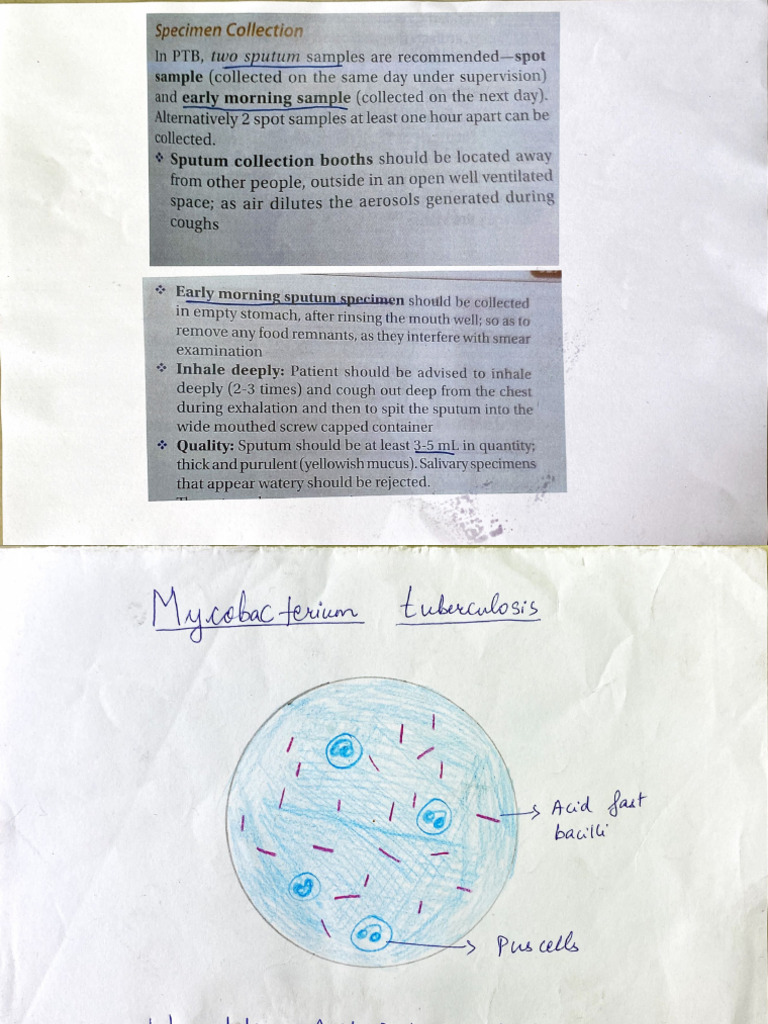 Specimen Collection
In PTB, two sputum samples are recommended—spot
sample (collected on the same day under supervision)
and early morning sample (collected on the next day).
Alternatively 2 spot samples at least one hour apart can be
collected.
❖ Sputum collection booths should be located away
from other people, outside in an open well ventilated
space; as air dilutes the aerosols generated during
coughs
❖ Early morning sputum specimen should be collected
in empty stomach, after rinsing the mouth well; so as to
remove any food remnants, as they interfere with smear
examination
❖ Inhale deeply: Patient should be advised to inhale
deeply (2-3 times) and cough out deep from the chest
during exhalation and then to spit the sputum into the
wide mouthed screw capped container
❖ Quality: Sputum should be at least 3-5 mL in quantity;
thick and purulent (yellowish mucus). Salivary specimens
that appear watery should be rejected.
Mycobacterium tuberculosis
Acid fast
bacilli
Pus cells